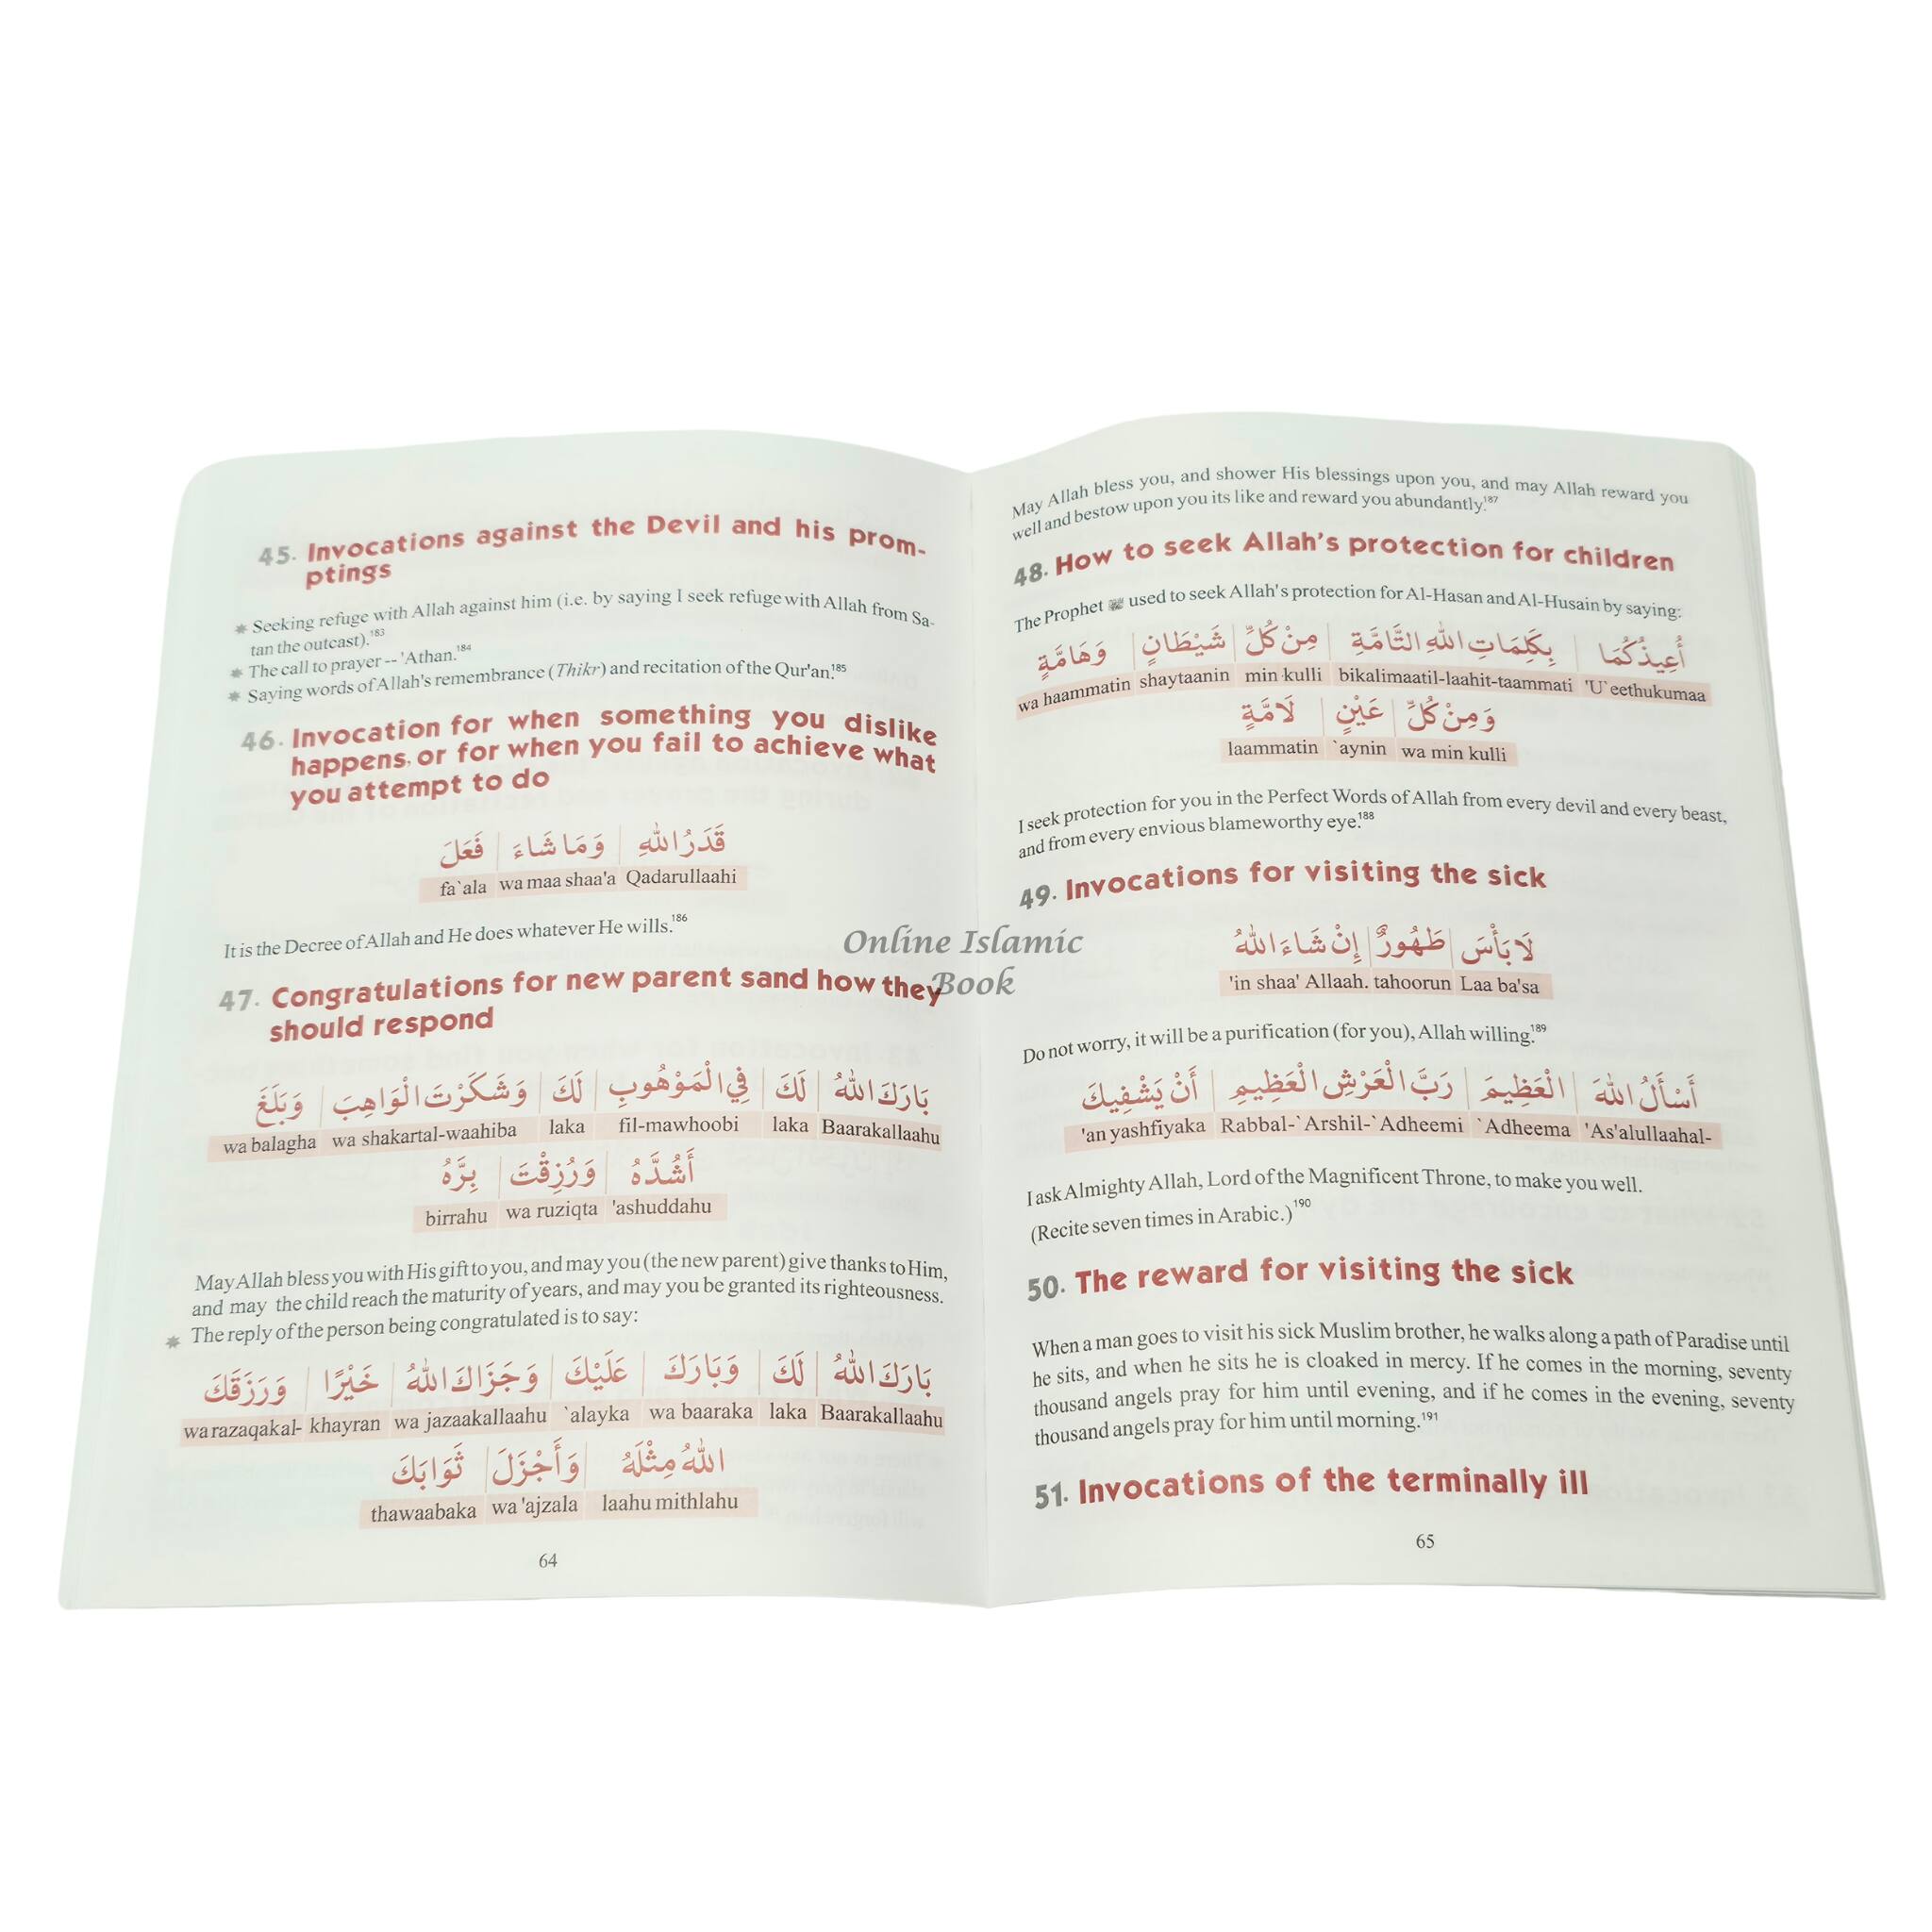 45. Invocations against the Devil and his prom-
ptings
* Seeking refuge with Allah against him (i.e. by saying I seek refuge with Allah from Sa-
tan the outcast).183
* The call to prayer -- 'Athan.184
* Saying words of Allah's remembrance (Thikr) and recitation of the Qur'an.185
46. Invocation for when something you dislike
happens, or for when you fail to achieve what
you attempt to do
قَدَرُ اللهِ وَمَا شَاءَ فَعَلَ
fa`ala wa maa shaa'a Qadarullaahi
It is the Decree of Allah and He does whatever He wills.186
47. Congratulations for new parent sand how they
should respond
بَارَكَ اللهُ لَكَ فِي الْمَوْهُوبِ لَكَ وَشَكَرْتَ الْوَاهِبَ وَبَلَغَ
wa balagha wa shakartal-waahiba laka fil-mawhoobi laka Baarakallaahu
أَشُدَّهُ وَرُزِقْتَ بِرَّهُ
birrahu wa ruziqta 'ashuddahu
May Allah bless you with His gift to you, and may you (the new parent) give thanks to Him,
and may the child reach the maturity of years, and may you be granted its righteousness.
* The reply of the person being congratulated is to say:
بَارَكَ اللهُ لَكَ وَبَارَكَ عَلَيْكَ وَجَزَاكَ اللهُ خَيْرًا وَرَزَقَكَ
wa razaqakal- khayran wa jazaakallaahu `alayka wa baaraka laka Baarakallaahu
اللهُ مِثْلَهُ وَأَجْزَلَ ثَوَابَكَ
thawaabaka wa 'ajzala laahu mithlahu
64
May Allah bless you, and shower His blessings upon you, and may Allah reward you
well and bestow upon you its like and reward you abundantly.187
48. How to seek Allah's protection for children
The Prophet ﷺ used to seek Allah's protection for Al-Hasan and Al-Husain by saying:
أُعِيذُكُمَا بِكَلِمَاتِ اللهِ التَّامَّةِ مِنْ كُلِّ شَيْطَانٍ وَهَامَّةٍ
wa haammatin shaytaanin min kulli bikalimaatil-laahit-taammati 'U`eethukumaa
وَمِنْ كُلِّ عَيْنٍ لَامَّةٍ
laammatin `aynin wa min kulli
I seek protection for you in the Perfect Words of Allah from every devil and every beast,
and from every envious blameworthy eye.188
49. Invocations for visiting the sick
لَا بَأْسَ طَهُورٌ إِنْ شَاءَ اللهُ
'in shaa' Allaah. tahoorun Laa ba'sa
Do not worry, it will be a purification (for you), Allah willing.189
أَسْأَلُ اللهَ الْعَظِيمَ رَبَّ الْعَرْشِ الْعَظِيمِ أَنْ يَشْفِيكَ
'an yashfiyaka Rabbal-`Arshil-`Adheemi `Adheema 'As'alullaahal-
I ask Almighty Allah, Lord of the Magnificent Throne, to make you well.
(Recite seven times in Arabic.)190
50. The reward for visiting the sick
When a man goes to visit his sick Muslim brother, he walks along a path of Paradise until
he sits, and when he sits he is cloaked in mercy. If he comes in the morning, seventy
thousand angels pray for him until evening, and if he comes in the evening, seventy
thousand angels pray for him until morning.191
51. Invocations of the terminally ill
65
Online Islamic
Book